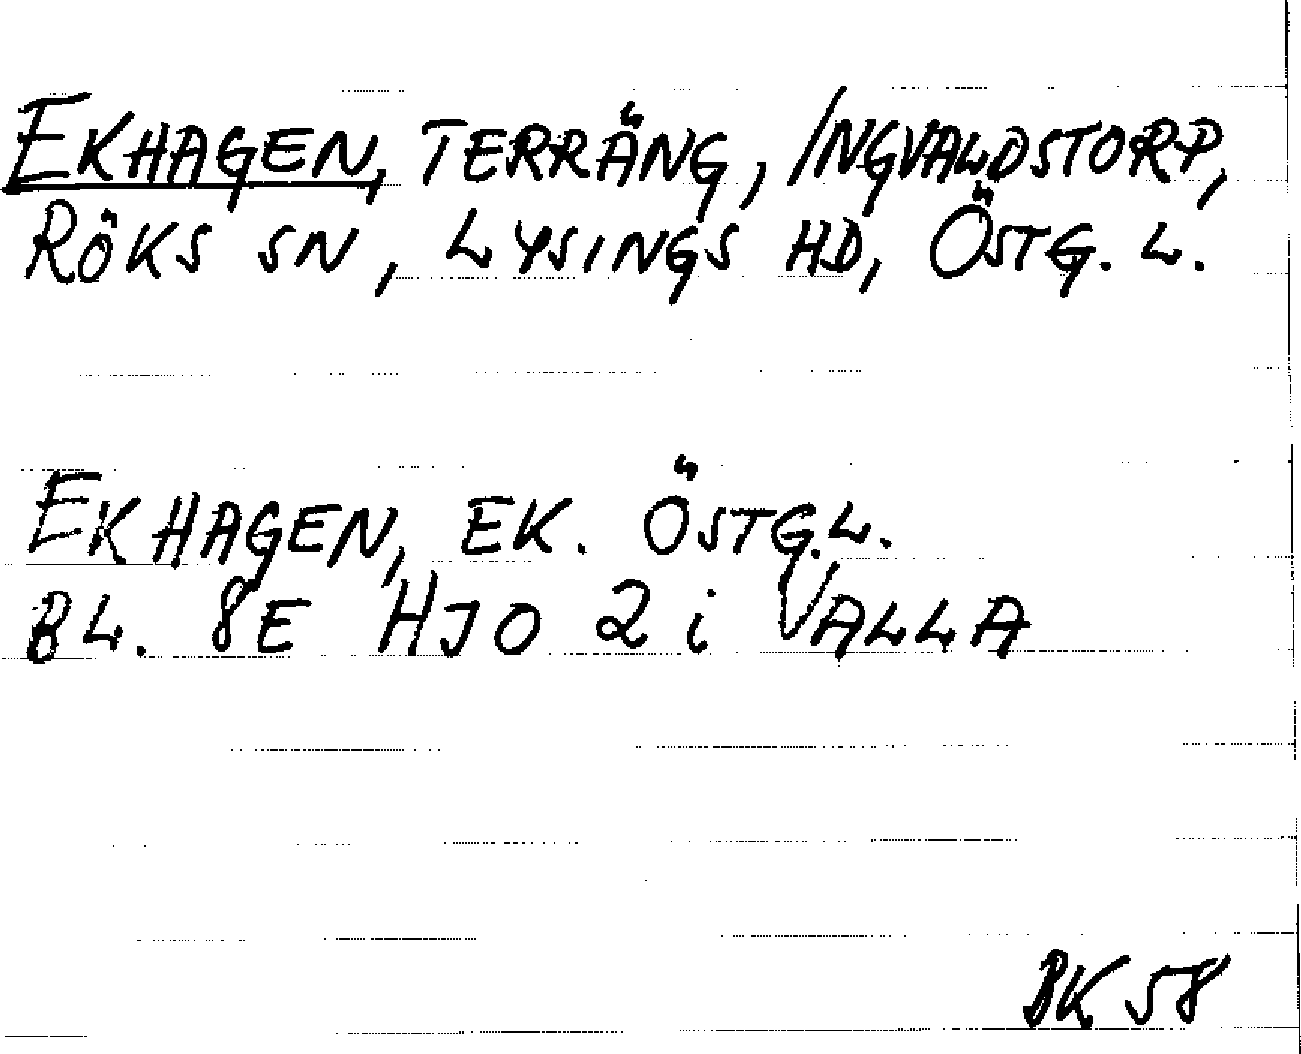 EKHAGEN, TERRÄNG, INGVALDSTORP,
RÖKS SN, LYSINGS HD, ÖSTG. L.
EKHAGEN, EK. ÖSTG.L.
BL. 8E HJO 2 i VALLA
BK 58